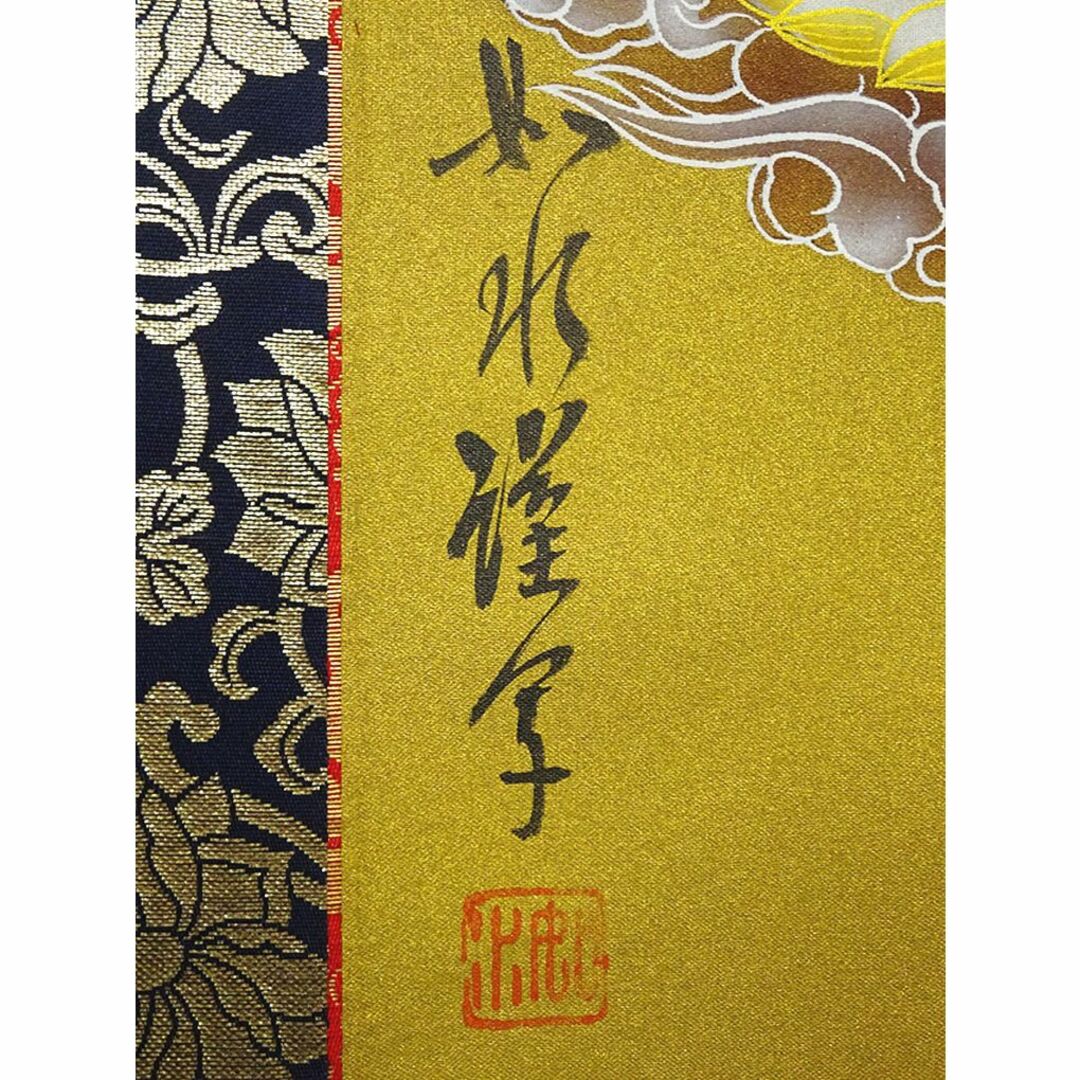 如水謹写